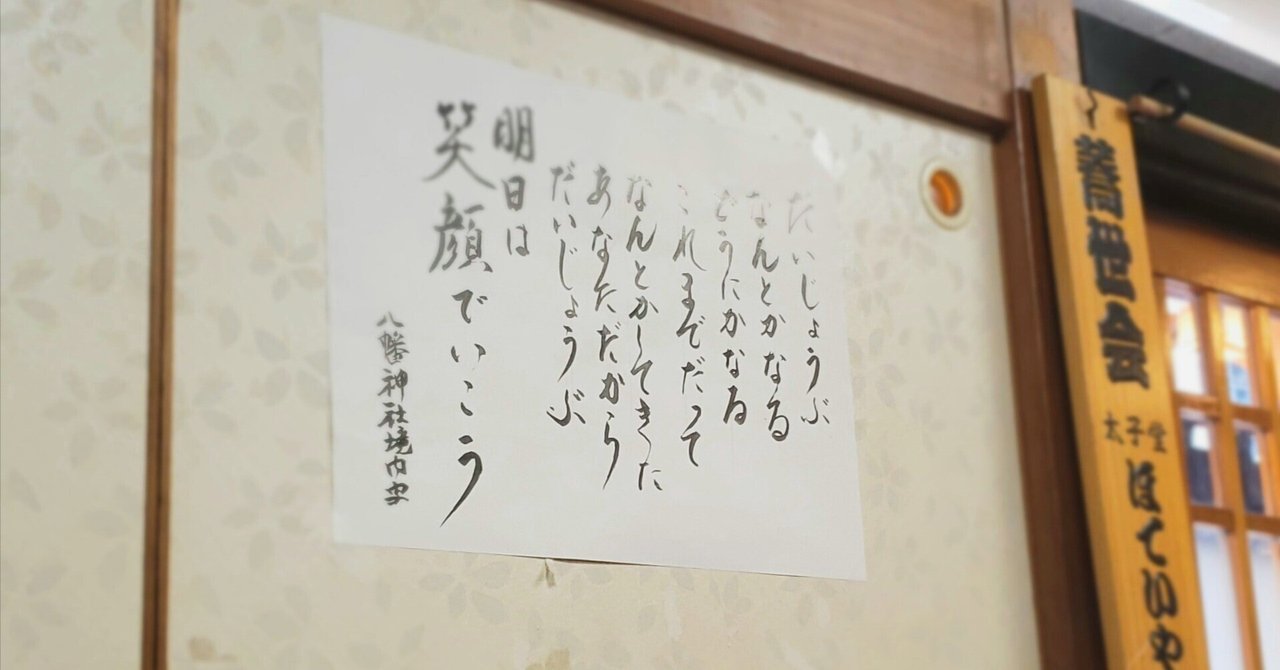 だいじょうぶ
なんとかなる
どうにかなる
これまでだって
なんとかしてきた
あなただから
だいじょうぶ
明日は
笑顔でいこう
八幡神社境内
世会
太子堂
ほていや